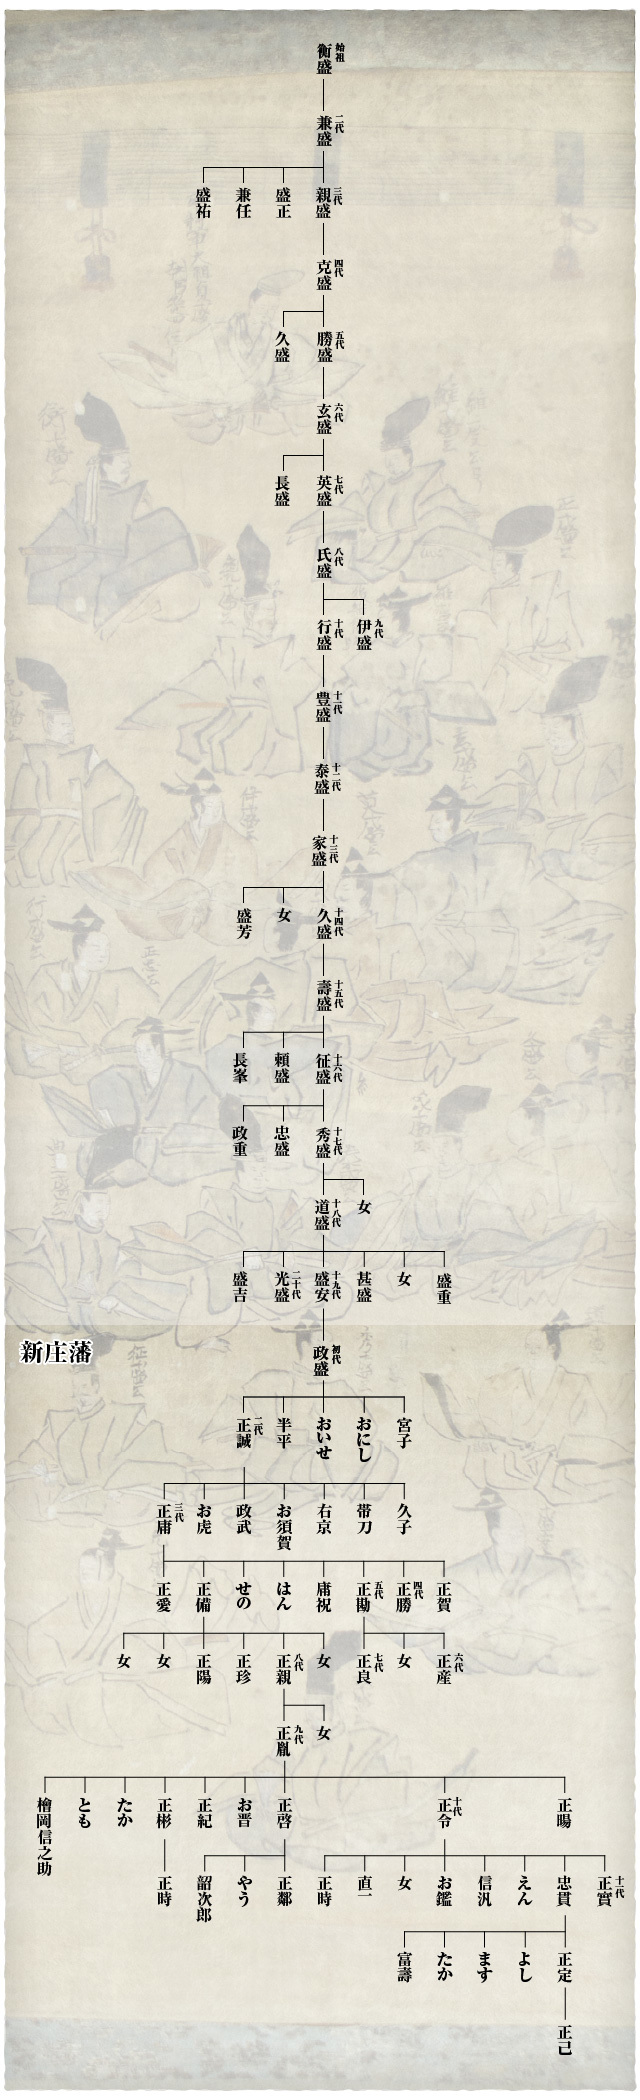 始祖 衡盛
二代 兼盛
三代 親盛
盛正
兼任
盛祐
四代 克盛
五代 勝盛
久盛
六代 玄盛
七代 英盛
長盛
八代 氏盛
九代 伊盛
十代 行盛
十一代 豊盛
十二代 泰盛
十三代 家盛
十四代 久盛
女
盛芳
十五代 壽盛
十六代 征盛
頼盛
長峯
十七代 秀盛
忠盛
政重
女
十八代 道盛
盛重
女
甚盛
十九代 盛安
二十代 光盛
盛吉
新庄藩
初代 政盛
宮子
おにし
おいせ
半平
二代 正誠
久子
帯刀
右京
お須賀
政武
お虎
三代 正庸
正賀
四代 正勝
五代 正勘
庸祝
はん
せの
正備
正愛
六代 正産
女
七代 正良
女
八代 正親
正珍
正陽
女
女
女
九代 正胤
正暘
十代 正令
正啓
お晋
正紀
正彬
たか
とも
檜岡信之助
十一代 正實
忠貫
えん
信汎
お鑑
女
直一
正時
正鄰
やう
韶次郎
正時
正定
よし
ます
たか
富壽
正己